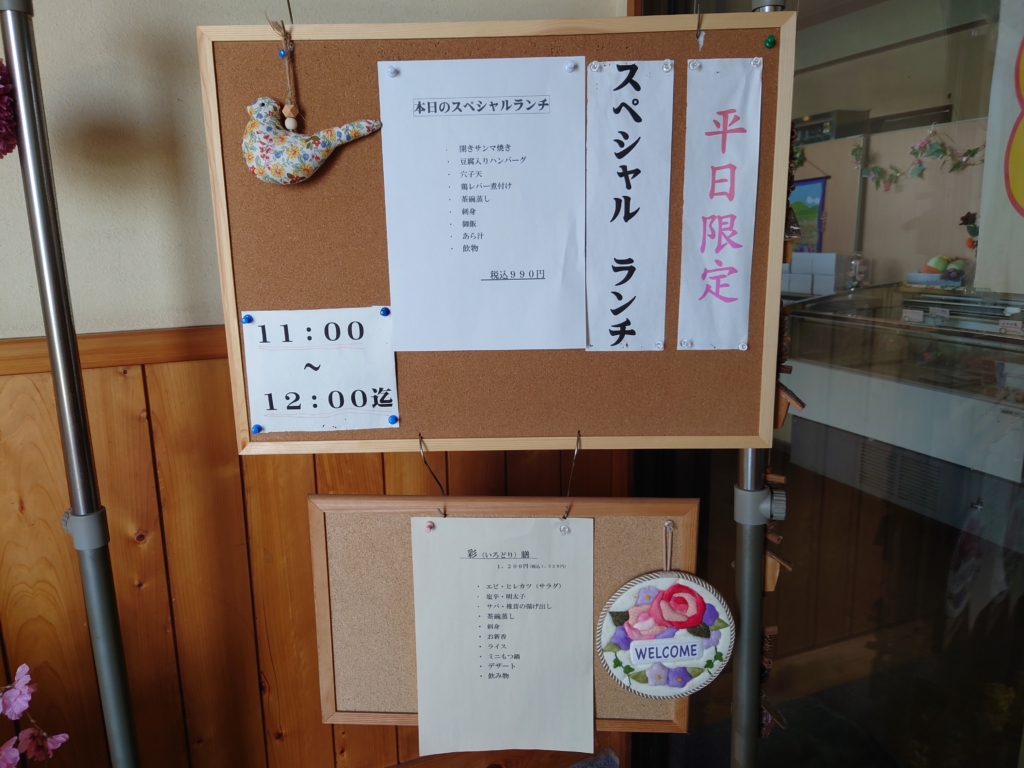 本日のスペシャルランチ
・ 開きサンマ焼き
・ 豆腐入りハンバーグ
・ 穴子天
・ 鶏レバー煮付け
・ 茶碗蒸し
・ 刺身
・ 御飯
・ あら汁
・ 飲物
税込990円
スペシャル ランチ
平日限定
11:00
~
12:00迄
彩(いろどり)膳
・ エビ・ヒレカツ(サラダ)
・ 塩辛・明太子
・ 茶碗蒸し
・ 刺身
・ お新香
・ ライス
・ ミニもつ鍋
・ デザート
・ 飲み物
WELCOME